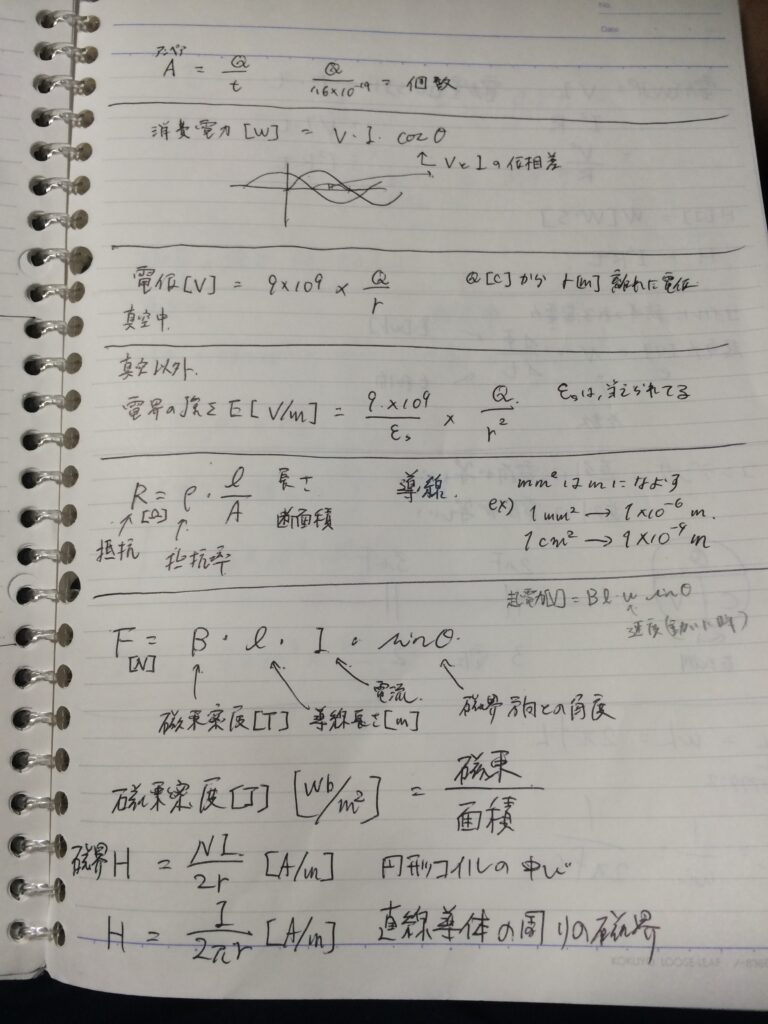 No.
Date
アンペア
A = Q/t　Q/1.6×10⁻¹⁹ = 個数
消費電力[W] = V・I・cosθ
VとIの位相差
電位[V] = 9×10⁹ × Q/r　Q[C]から r[m] 離れた電位
真空中
真空以外.
電界の強さE[V/m] = 9×10⁹/εs × Q/r²　εsは,
R = ρ・l/A　長さ　導線.　mm²はmになおす
[Ω]　断面積　ex) 1mm² → 1×10⁻⁶ m.
抵抗　抵抗率　1cm² → 1×10⁻⁴ m
起電力[V] = Bl・u sinθ
速度(動いた時)
F = B・l・I・sinθ.
[N]
電流.
磁束密度[T]　導線長さ[m]　磁界方向との角度
磁束密度[T] [Wb/m²] = 磁束/面積
磁界H = NI/2r [A/m]　円形コイルの中心
H = I/2πr [A/m]　直線導体の周りの磁界
KOKUYO LOOSE-LEAF